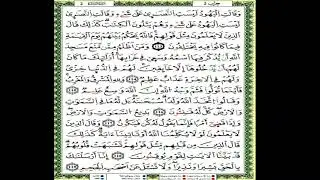 وَقَالَتِ الْيَهُودُ لَيْسَتِ النَّصَٰرَىٰ عَلَىٰ شَىْءٍ وَقَالَتِ النَّصَٰرَىٰ
لَيْسَتِ الْيَهُودُ عَلَىٰ شَىْءٍ وَهُمْ يَتْلُونَ الْكِتَٰبَ كَذَٰلِكَ قَالَ
الَّذِينَ لَا يَعْلَمُونَ مِثْلَ قَوْلِهِمْ فَاللَّهُ يَحْكُمُ بَيْنَهُمْ يَوْمَ الْقِيَٰمَةِ
فِيمَا كَانُوا فِيهِ يَخْتَلِفُونَ ١١٣ وَمَنْ أَظْلَمُ مِمَّن مَّنَعَ مَسَٰجِدَ
اللَّهِ أَن يُذْكَرَ فِيهَا اسْمُهُ وَسَعَىٰ فِى خَرَابِهَا أُولَٰئِكَ مَا كَانَ
لَهُمْ أَن يَدْخُلُوهَا إِلَّا خَائِفِينَ لَهُمْ فِى الدُّنْيَا خِزْىٌ
وَلَهُمْ فِى الْءَاخِرَةِ عَذَابٌ عَظِيمٌ ١١٤ وَلِلَّهِ الْمَشْرِقُ وَالْمَغْرِبُ
فَأَيْنَمَا تُوَلُّوا فَثَمَّ وَجْهُ اللَّهِ إِنَّ اللَّهَ وَٰسِعٌ عَلِيمٌ ١١٥
وَقَالُوا اتَّخَذَ اللَّهُ وَلَدًا سُبْحَٰنَهُ بَل لَّهُ مَا فِى السَّمَٰوَٰتِ
وَالْأَرْضِ كُلٌّ لَّهُ قَٰنِتُونَ ١١٦ بَدِيعُ السَّمَٰوَٰتِ وَالْأَرْضِ
وَإِذَا قَضَىٰ أَمْرًا فَإِنَّمَا يَقُولُ لَهُ كُن فَيَكُونُ ١١٧ وَقَالَ الَّذِينَ
لَا يَعْلَمُونَ لَوْلَا يُكَلِّمُنَا اللَّهُ أَوْ تَأْتِينَا ءَايَةٌ كَذَٰلِكَ
قَالَ الَّذِينَ مِن قَبْلِهِم مِّثْلَ قَوْلِهِمْ تَشَٰبَهَتْ قُلُوبُهُمْ
قَدْ بَيَّنَّا الْءَايَٰتِ لِقَوْمٍ يُوقِنُونَ ١١٨ إِنَّا أَرْسَلْنَٰكَ
بِالْحَقِّ بَشِيرًا وَنَذِيرًا وَلَا تُسْـَٔلُ عَنْ أَصْحَٰبِ الْجَحِيمِ ١١٩